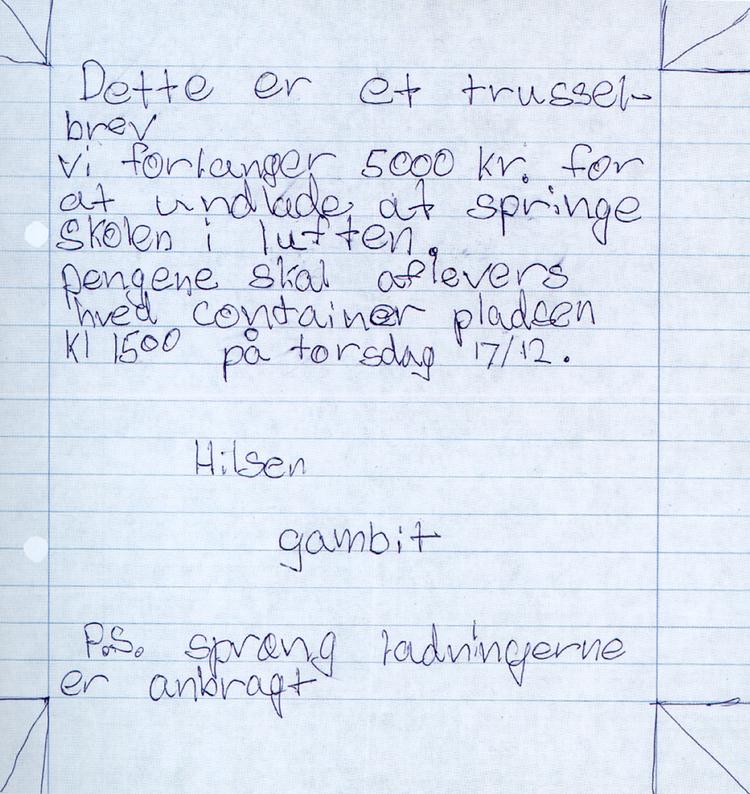 Dette er et trussel-
brev
vi forlanger 5000 kr. for
at undlade at springe
skolen i luften.
pengene skal aflevers
hved container pladsen
Kl 1500 på torsdag 17/12.
Hilsen
gambit
P.S. spræng ladningerne
er anbragt